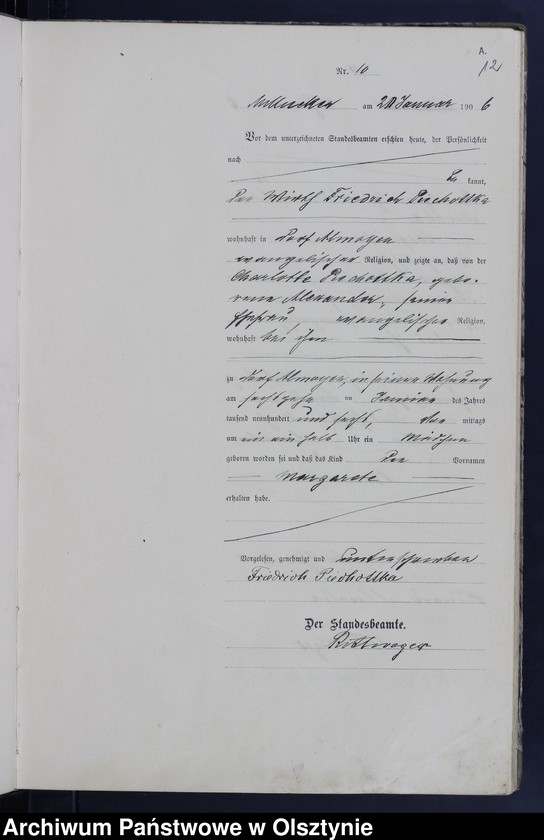 A.
12
Nr. 10
am 20 Januar 1906
Vor dem unterzeichneten Standesbeamten erschien heute, der Persönlichkeit
nach
be kannt,
der Wirth Friedrich Piechottka
wohnhaft in Dorf Almoyen
evangelischer Religion, und zeigte an, daß von der
Charlotte Piechottka, gebo-
rene Alexander, seiner
Ehefrau, evangelischer Religion,
wohnhaft bei ihm
zu Dorf Almoyen, in seiner Wohnung
am sechszehn ten Januar des Jahres
tausend neunhundert und sechs, vor mittags
um ein halb Uhr ein Mädchen
geboren worden sei und daß das Kind den Vornamen
Margarete
erhalten habe.
Vorgelesen, genehmigt und unterschrieben
Friedrich Piechottka
Der Standesbeamte.
Rittweger
Archiwum Państwowe w Olsztynie